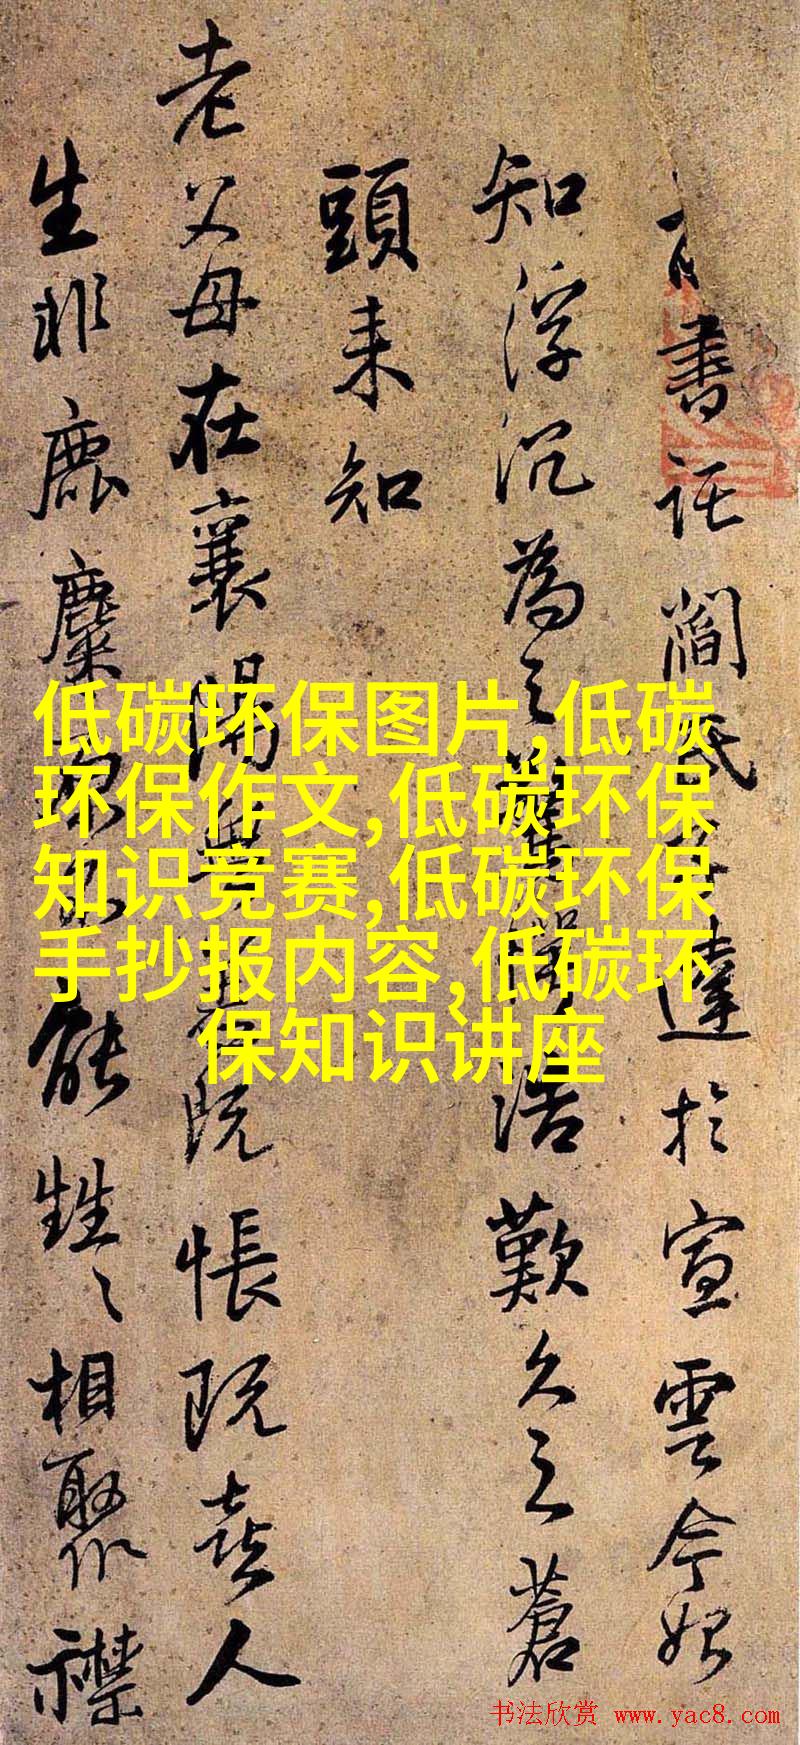 書託閻氏
達於宣雲今始
知浮沉為之
浩歎久之蒼
頭来知
老父母在襄陽
既悵既喜人
生非鹿麋
能甡々相聚
低碳环保图片,低碳
环保作文,低碳环保
知识竞赛,低碳环保
手抄报内容,低碳环
保知识讲座
书法欣赏 www.yac8.com